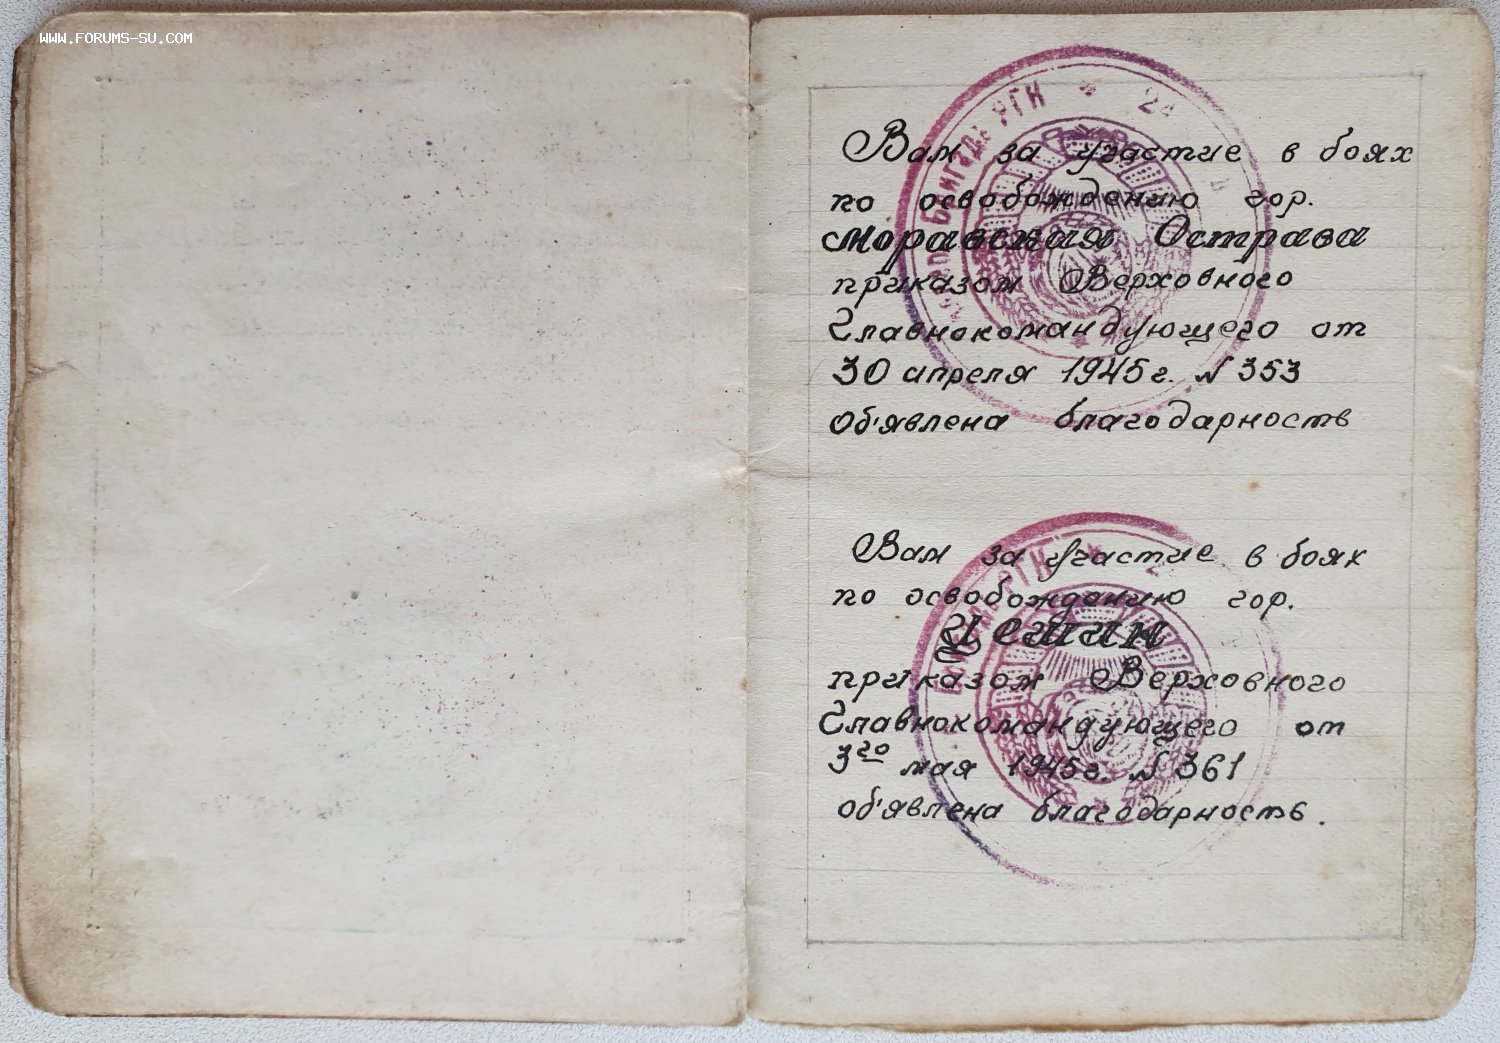 WWW.FORUMS-SU.COM
Вам за участие в боях
по освобождению гор.
Моравская Острава
приказом Верховного
Главнокомандующего от
30 апреля 1945 г. № 353
об'явлена благодарность
Вам за участие в боях
по освобождению гор.
Цешин
приказом Верховного
Главнокомандующего от
3го мая 1945 г. № 361
об'явлена благодарность.
Бригады РГК * 24
РГК *